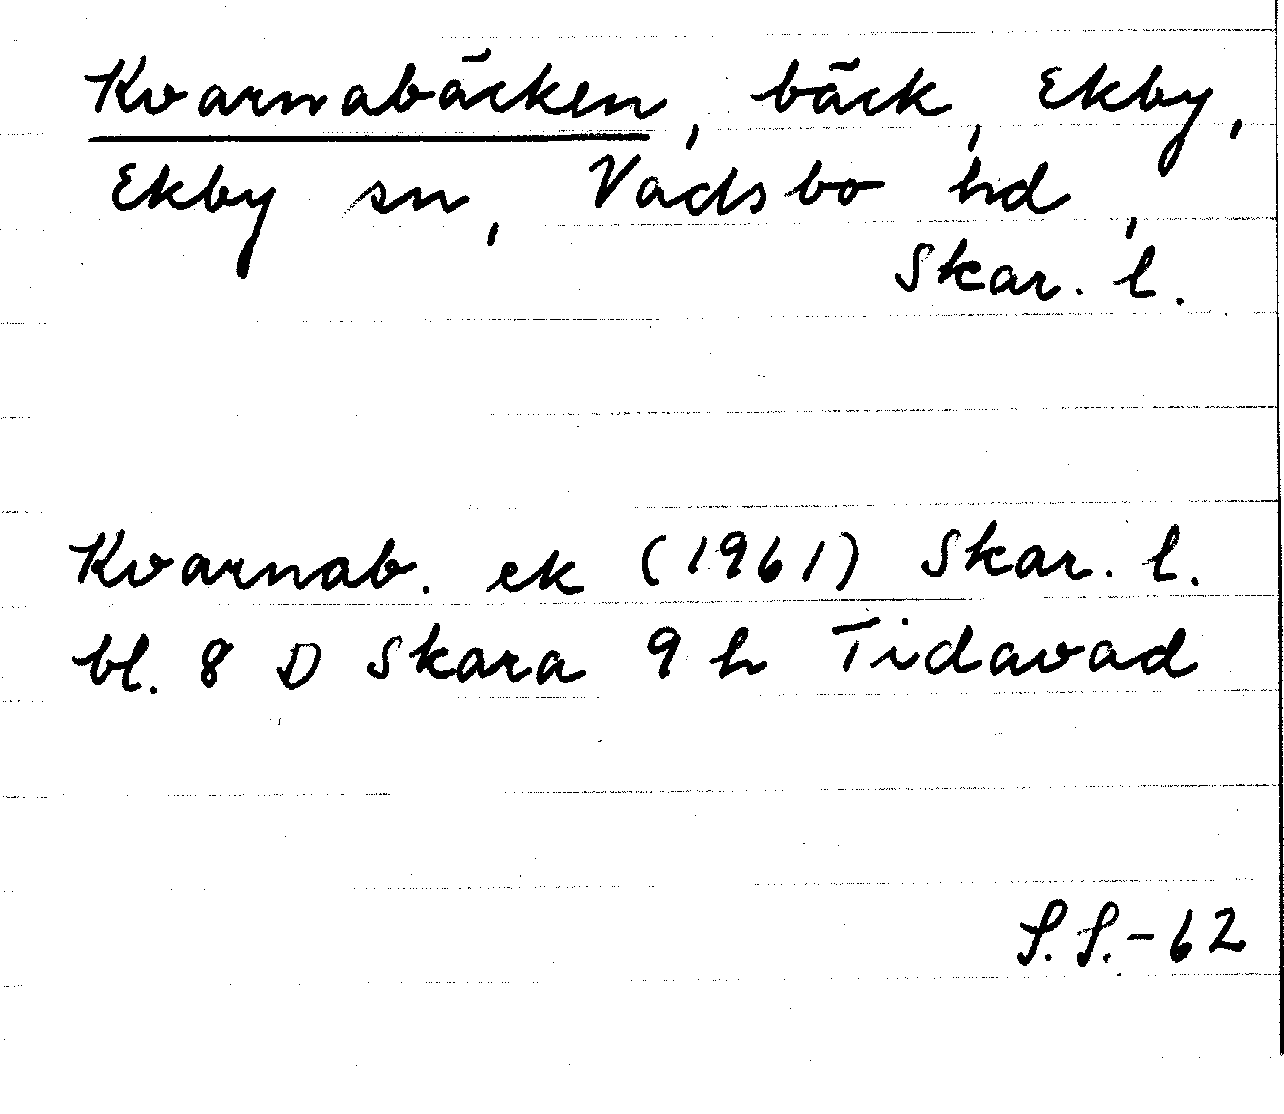 Kvarnabäcken, bäck, Ekby,
Ekby sn, Vadsbo hd,
Skar. l.
Kvarnab. ek (1961) Skar. l.
bl. 8 D Skara 9 h Tidavad
S.S.-62